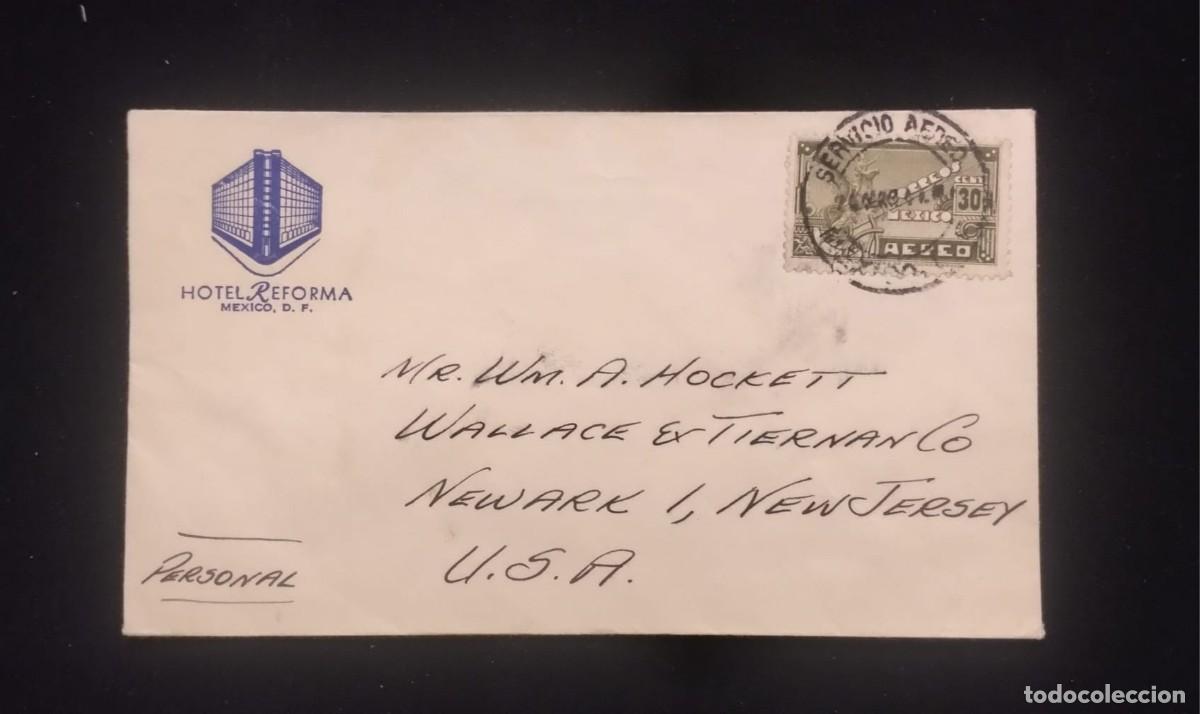 HOTEL REFORMA
MEXICO, D. F.
SERVICIO AEREO
CORREOS
MEXICO
CENT
30
AEREO
MR. WM. A. HOCKETT
WALLACE & TIERNAN CO
NEWARK 1, NEW JERSEY
U. S. A.
PERSONAL
todocoleccion